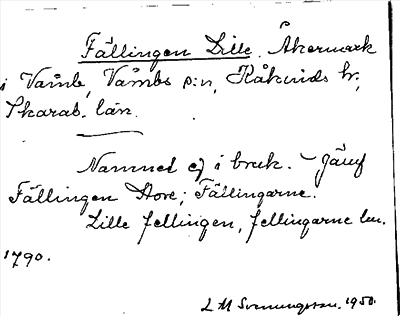 Fällingen Lille. Åkermark
i Våmb, Våmbs s:n, Kåkinds hr,
Skarab. län.
Namnet ej i bruk. – Jämf
Fällingen Store; Fällingarne.
Lille fellingen, fellingarne lm.
1790.
L M Svenungsson. 1950.